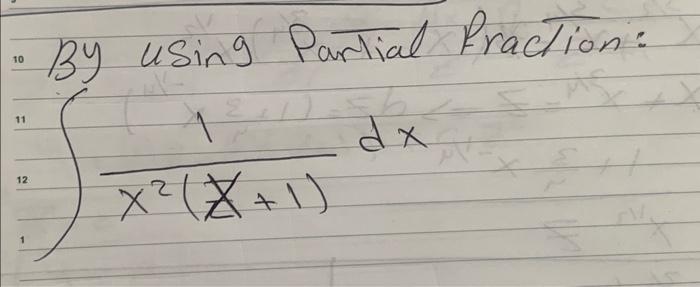 10 By using Partial Fraction:
11 ∫ 1 dx
12 x²(X+1)
1